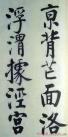 京背芒面洛
浮渭據涇宮